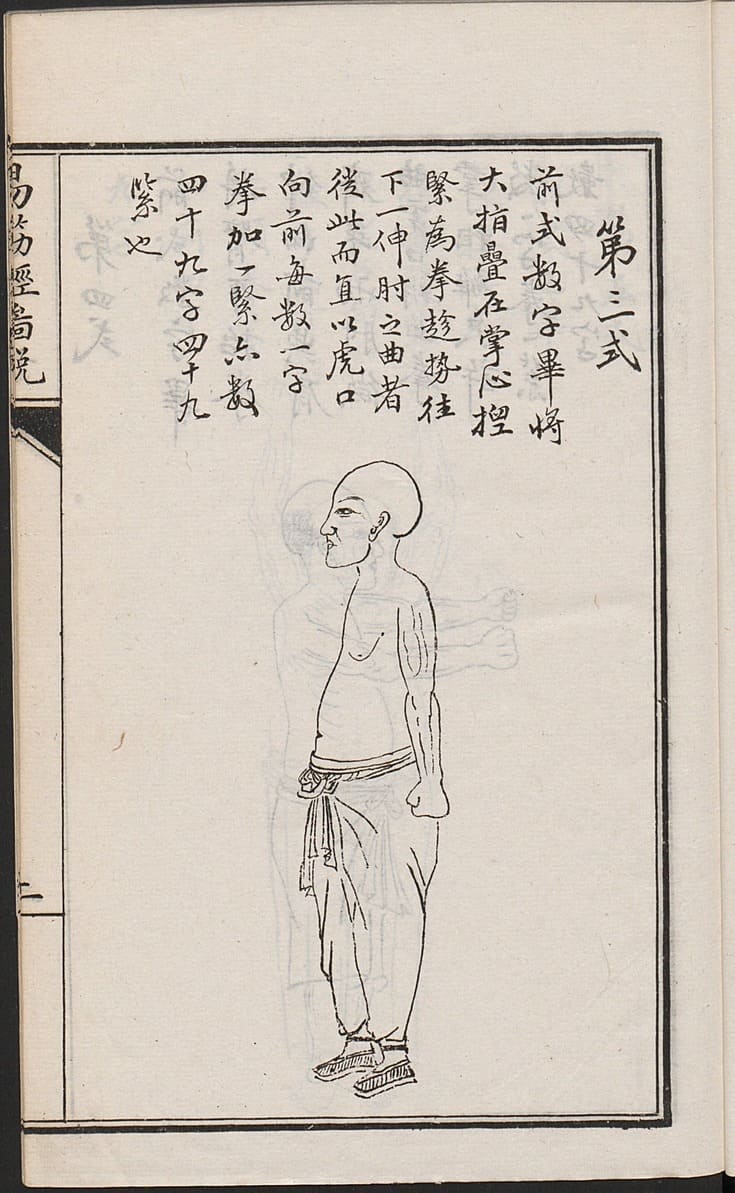 第三式
前式数字畢將
大指疊在掌心揑
緊為拳趁势往
下一伸肘之曲者
從此而直以虎口
向前每数一字
拳加一緊亦数
四十九字四十九
緊也
易筋經啚說
二